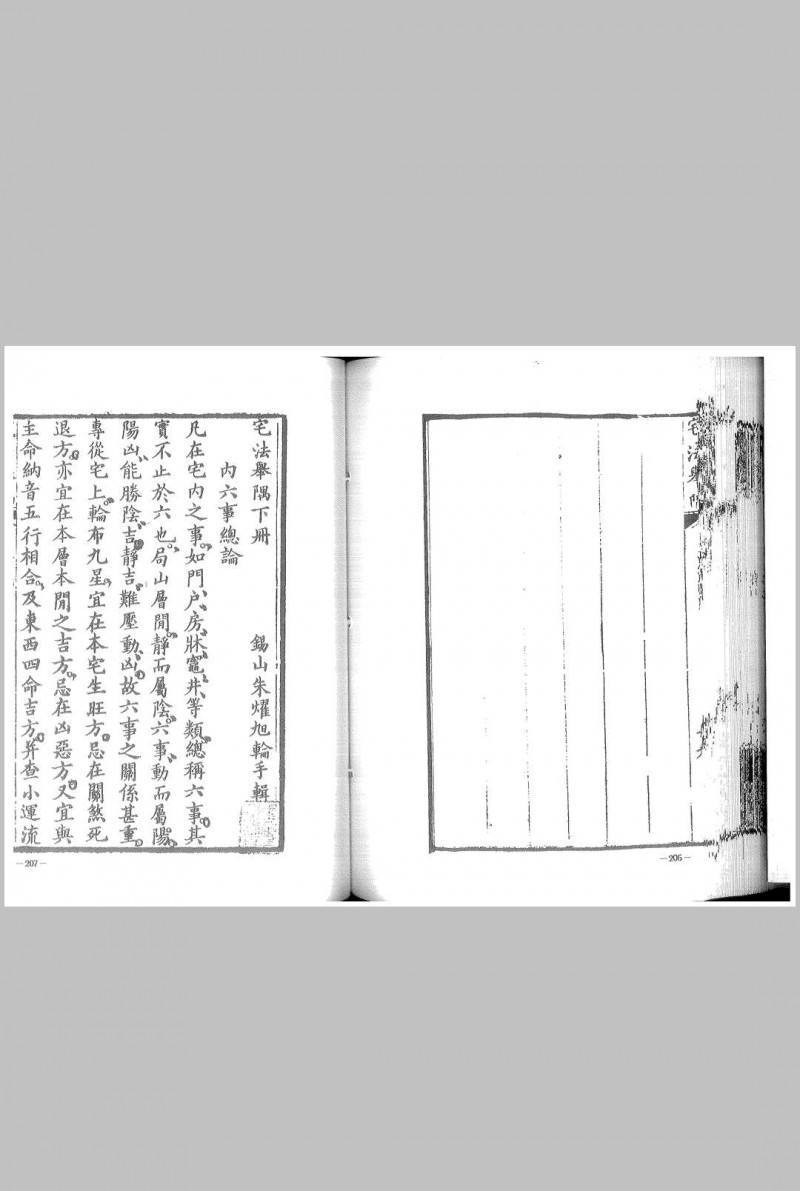 宅法舉隅
—206—
宅法舉隅下冊　　　錫山朱燿旭輪手輯
內六事總論
凡在宅內之事。如門、户、房、牀、竈、井、等類。總稱六事。其
實不止於六也。局山層間。靜而屬陰。六事。動而屬陽。
陽凶。能勝陰吉。靜吉。難壓動凶。故六事之關係甚重。
專從宅上。輪布九星。宜在本宅生旺方。忌在關煞死
退方。亦宜在本層本間之吉方。忌在凶惡方。又宜與
主命納音五行相合。及東西四命吉方。并查小運流
—207—